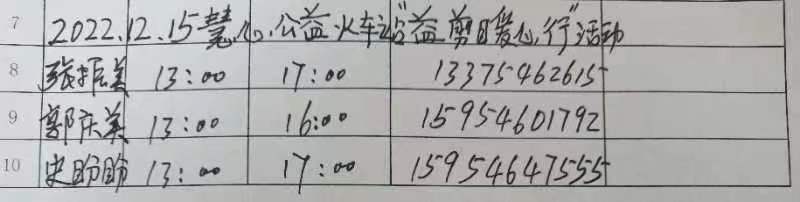 7 2022.12.15慧心公益火车站"益剪暖心行"活动
8 张振美 13:00 17:00 13375462615
9 郭庆美 13:00 16:00 15954601792
10 史盼盼 13:00 17:00 15954647555